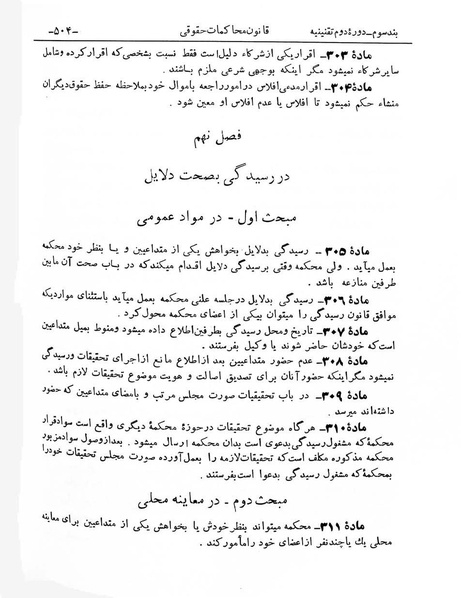 بند سوم ـ دورۀ دوم تقنینیه
قانون محاکمات حقوقی
ـ۵۰۴ـ
مادۀ ۳۰۳ـ اقرار یکی از شرکاء دلیل است فقط نسبت بشخصی که اقرار کرده و شامل
سایر شرکاء نمیشود مگر اینکه بوجهی شرعی ملزم باشند .
مادۀ ۳۰۴ـ اقرار مدعی افلاس در امور راجعه باموال خود بملاحظه حفظ حقوق دیگران
منشاء حکم نمیشود تا افلاس یا عدم افلاس او معین شود .
فصل نهم
در رسیدگی بصحت دلایل
مبحث اول - در مواد عمومی
مادۀ ۳۰۵ ـ رسیدگی بدلایل بخواهش یکی از متداعیین و یا بنظر خود محکمه
بعمل میآید . ولی محکمه وقتی برسیدگی دلایل اقدام میکند که در باب صحت آن مابین
طرفین منازعه باشد .
مادۀ ۳۰۶ـ رسیدگی بدلایل در جلسه علنی محکمه بعمل میآید باستثنای مواردیکه
موافق قانون رسیدگی را میتوان بیکی از اعضای محکمه محول کرد .
مادۀ ۳۰۷ـ تاریخ و محل رسیدگی بطرفین اطلاع داده میشود و منوط بمیل متداعیین
است که خودشان حاضر شوند یا وکیل بفرستند .
مادۀ ۳۰۸ ـ عدم حضور متداعیین بعد از اطلاع مانع از اجرای تحقیقات و رسیدگی
نمیشود مگر اینکه حضور آنان برای تصدیق اصالت و هویت موضوع تحقیقات لازم باشد .
مادۀ ۳۰۹ ـ در باب تحقیقات صورت مجلس مرتب و بامضای متداعیین که حضور
داشته‌اند میرسد .
مادۀ ۳۱۰ـ هرگاه موضوع تحقیقات در حوزۀ محکمۀ دیگری واقع است سواد قرار
محکمۀ که مشغول رسیدگی بدعوی است بدان محکمه ارسال میشود . بعد از وصول سواد مزبور
محکمه مذکوره مکلف است که تحقیقات لازمه را بعمل آورده صورت مجلس تحقیقات خود را
بمحکمۀ که مشغول رسیدگی بدعوا است بفرستند .
مبحث دوم - در معاینه محلی
مادۀ ۳۱۱ـ محکمه میتواند بنظر خودش یا بخواهش یکی از متداعیین برای معاینه
محلی یك یا چند نفر از اعضای خود را مأمور کند .